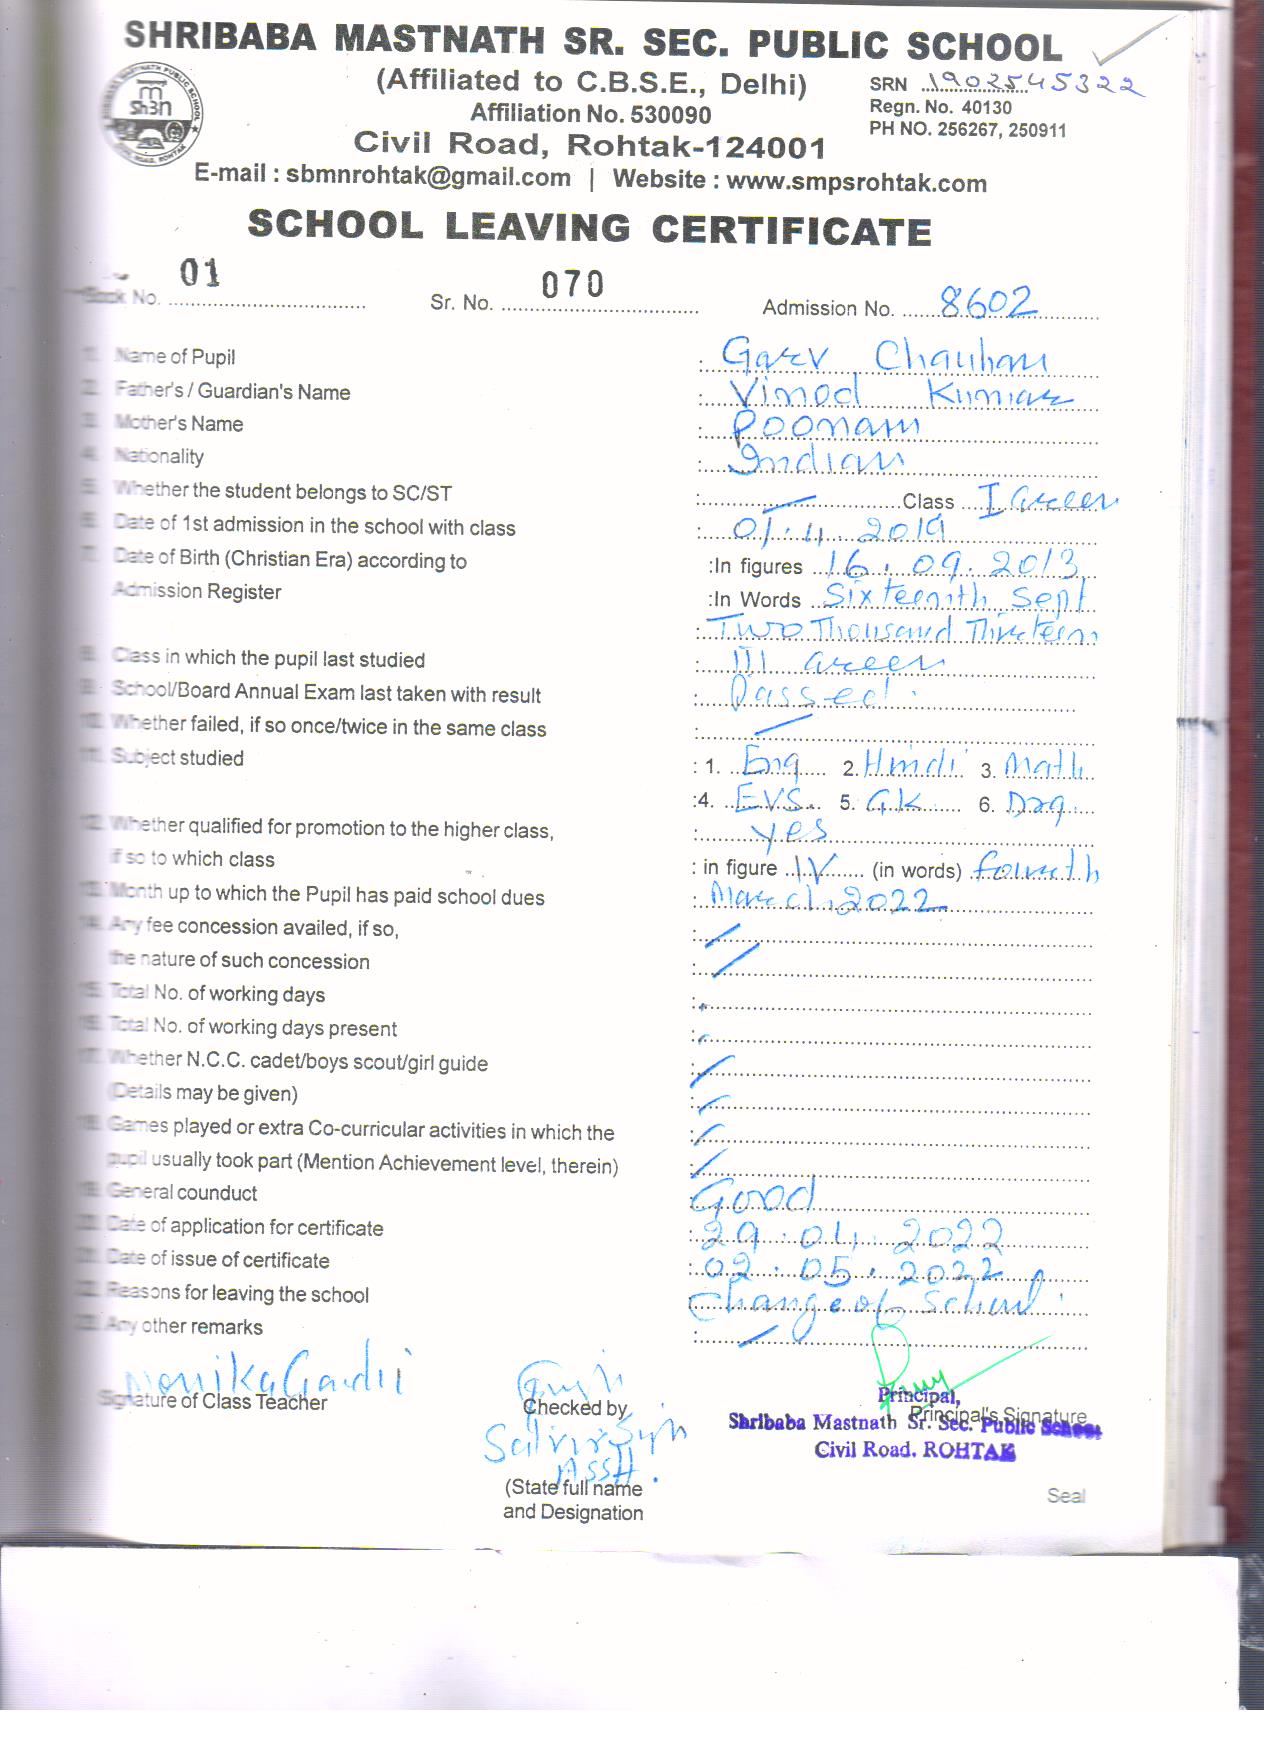 SHRIBABA MASTNATH SR. SEC. PUBLIC SCHOOL
(Affiliated to C.B.S.E., Delhi)
SRN 1902545322
Affiliation No. 530090
Regn. No. 40130
Civil Road, Rohtak-124001
PH NO. 256267, 250911
E-mail : sbmnrohtak@gmail.com | Website : www.smpsrohtak.com
SCHOOL LEAVING CERTIFICATE
Book No. 01 Sr. No. 070 Admission No. 8602
1. Name of Pupil : Garv Chauhan
2. Father's / Guardian's Name : Vimod Kumar
3. Mother's Name : Poonam
4. Nationality : Indian
5. Whether the student belongs to SC/ST : — Class I Green
6. Date of 1st admission in the school with class : 01.4.2019
7. Date of Birth (Christian Era) according to :In figures 16.09.2013
Admission Register :In Words Sixteenth Sept
: Two Thousand Thirteen
8. Class in which the pupil last studied : III Green
9. School/Board Annual Exam last taken with result : Passed.
10. Whether failed, if so once/twice in the same class : —
11. Subject studied : 1. Eng 2. Hindi 3. Math
:4. EVS 5. GK 6. Drg
12. Whether qualified for promotion to the higher class, : yes
if so to which class : in figure IV (in words) fourth
13. Month up to which the Pupil has paid school dues : March, 2022
14. Any fee concession availed, if so, : /
the nature of such concession : /
15. Total No. of working days :
16. Total No. of working days present :
17. Whether N.C.C. cadet/boys scout/girl guide : /
(Details may be given) : /
18. Games played or extra Co-curricular activities in which the : /
pupil usually took part (Mention Achievement level, therein) : /
19. General counduct : Good
20. Date of application for certificate : 29.04.2022
21. Date of issue of certificate : 02.05.2022
22. Reasons for leaving the school : Change of School.
23. Any other remarks : —
Monika Gandhi
Signature of Class Teacher
Checked by
Principal,
Principal's Signature
Shribaba Mastnath Sr. Sec. Public School
Civil Road, ROHTAK
(State full name
and Designation
Seal